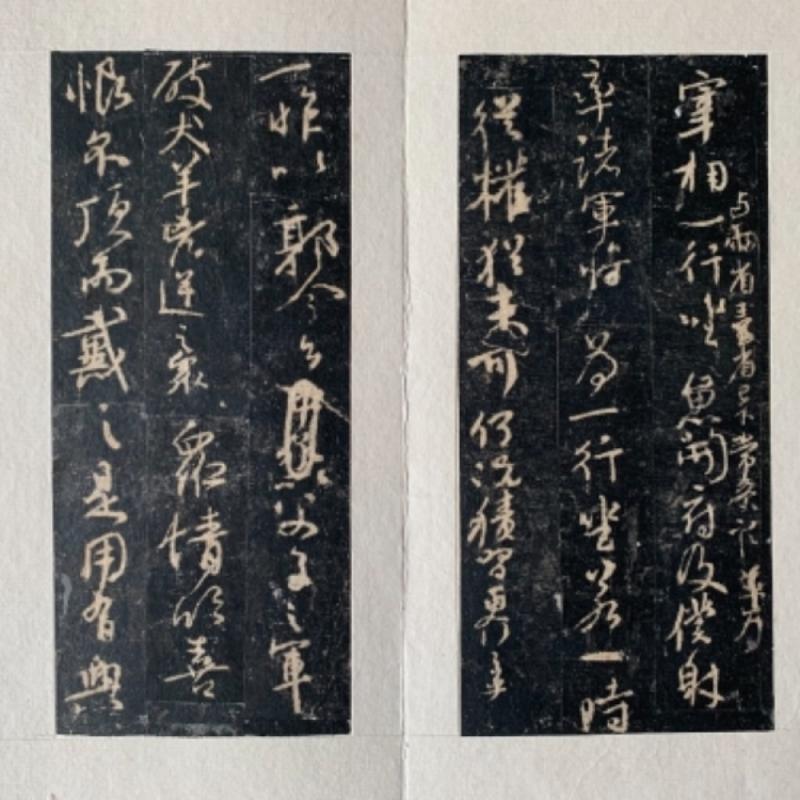 宰相一行坐魚開府及僕射
与兩省臺省已下常參官並為
率諸軍將為一行坐若一時
從權猶未可何況積習更行之乎
一昨以郭令公父子之軍
破犬羊兇逆之衆衆情欣喜
恨不頂而戴之是用有興